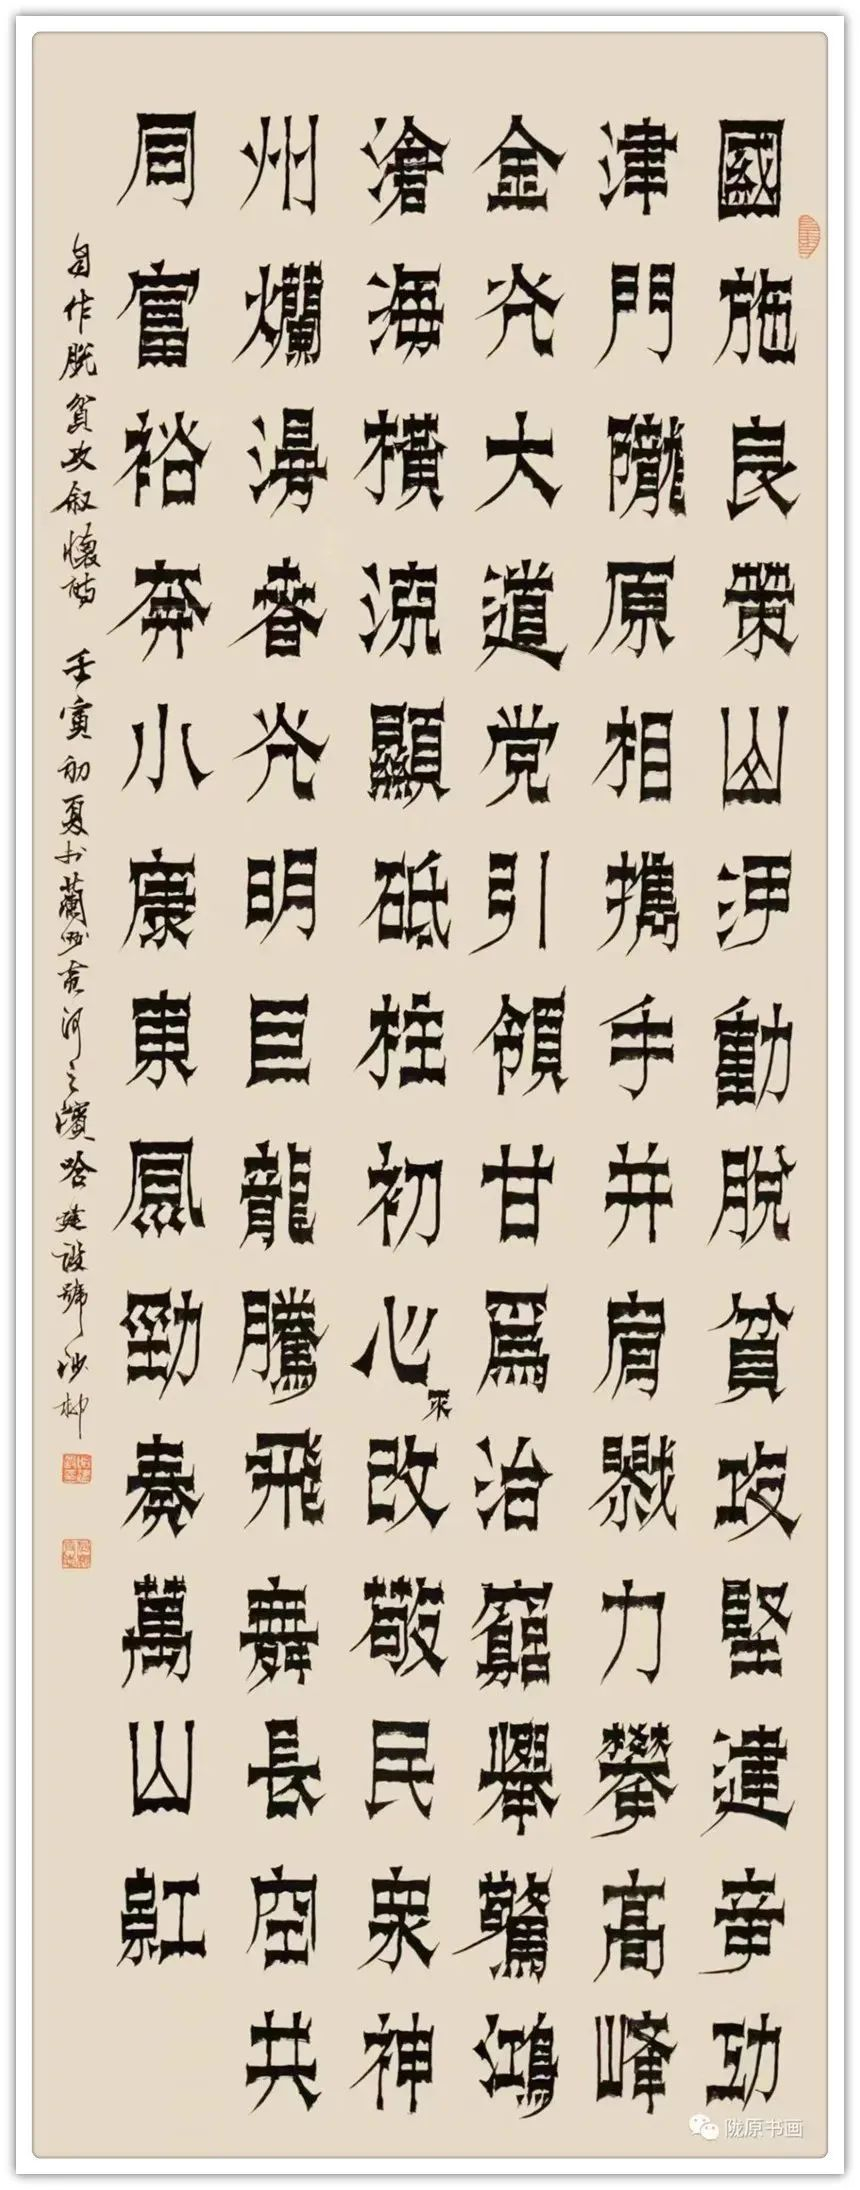 國施良策山河動脫貧攻堅建奇功
津門隴原相攜手并肩勠力攀高峰
金光大道党引領甘爲治窮舉驚鴻
滄海橫流顯砥柱初心不改敬民衆神
州爛漫春光明巨龍騰飛舞長空共
同富裕奔小康東風勁奏萬山紅
自作脱貧攻叙懷詩 壬寅初夏书蘭州黄河之濱 哈建設號沙柳
陇原书画